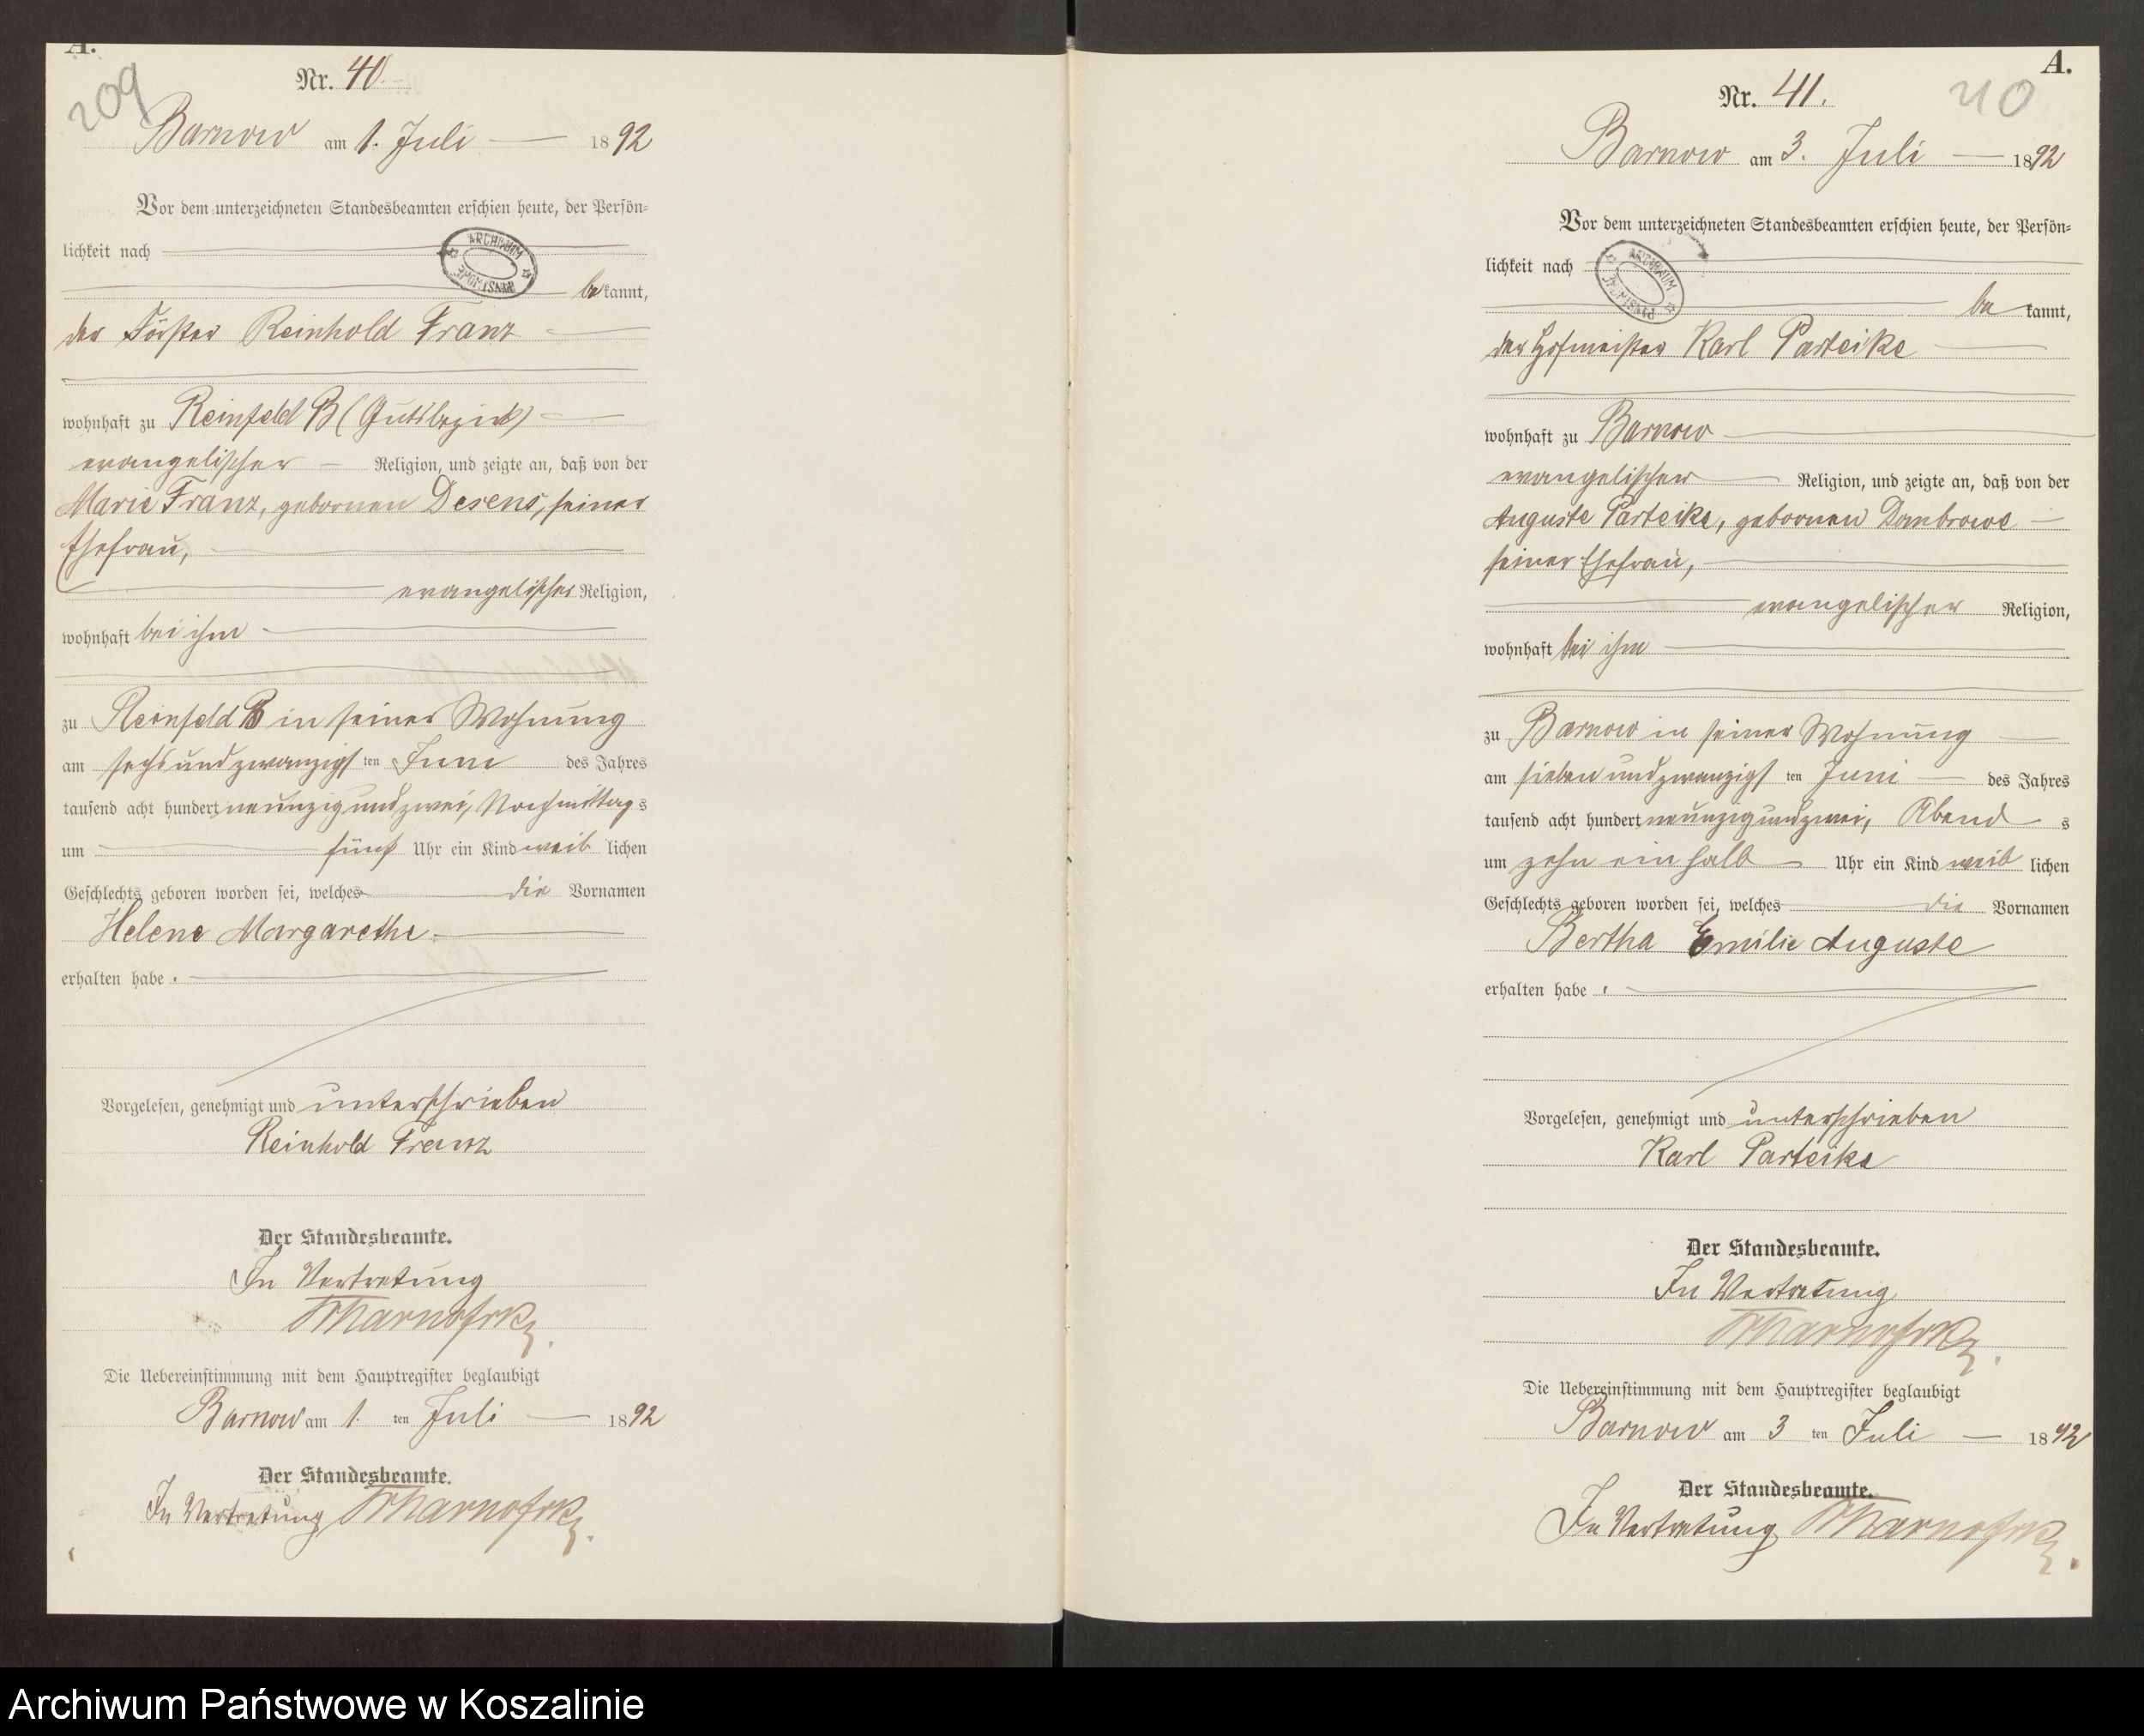 A.
209
Nr. 40.
Barnow am 1. Juli 1892
Vor dem unterzeichneten Standesbeamten erschien heute, der Persön-
lichkeit nach
ARCHIWUM PAŃSTWOWE
bekannt,
der Förster Reinhold Franz
wohnhaft zu Reinfeld B (Gutsbezirk)
evangelischer Religion, und zeigte an, daß von der
Marie Franz, geborenen Desens, seiner
Ehefrau,
evangelischer Religion,
wohnhaft bei ihm
zu Reinfeld B in seiner Wohnung
am sechsundzwanzigsten Juni des Jahres
tausend acht hundert neunzig und zwei, Nachmittags
um fünf Uhr ein Kind weiblichen
Geschlechts geboren worden sei, welches die Vornamen
Helene Margarethe
erhalten habe.
Vorgelesen, genehmigt und unterschrieben
Reinhold Franz
Der Standesbeamte.
In Vertretung
Die Uebereinstimmung mit dem Hauptregister beglaubigt
Barnow am 1. ten Juli 1892
Der Standesbeamte.
In Vertretung
A.
210
Nr. 41.
Barnow am 3. Juli 1892
Vor dem unterzeichneten Standesbeamten erschien heute, der Persön-
lichkeit nach
ARCHIWUM PAŃSTWOWE
bekannt,
der Hofmeister Karl Parteike
wohnhaft zu Barnow
evangelischer Religion, und zeigte an, daß von der
Auguste Parteike, geborenen Dombrowe
seiner Ehefrau,
evangelischer Religion,
wohnhaft bei ihm
zu Barnow in seiner Wohnung
am siebenundzwanzigsten Juni des Jahres
tausend acht hundert neunzig und zwei, Abends
um zehn ein halb Uhr ein Kind weiblichen
Geschlechts geboren worden sei, welches die Vornamen
Bertha Emilie Auguste
erhalten habe.
Vorgelesen, genehmigt und unterschrieben
Karl Parteike
Der Standesbeamte.
In Vertretung
Die Uebereinstimmung mit dem Hauptregister beglaubigt
Barnow am 3 ten Juli 1892
Der Standesbeamte.
In Vertretung
Archiwum Państwowe w Koszalinie